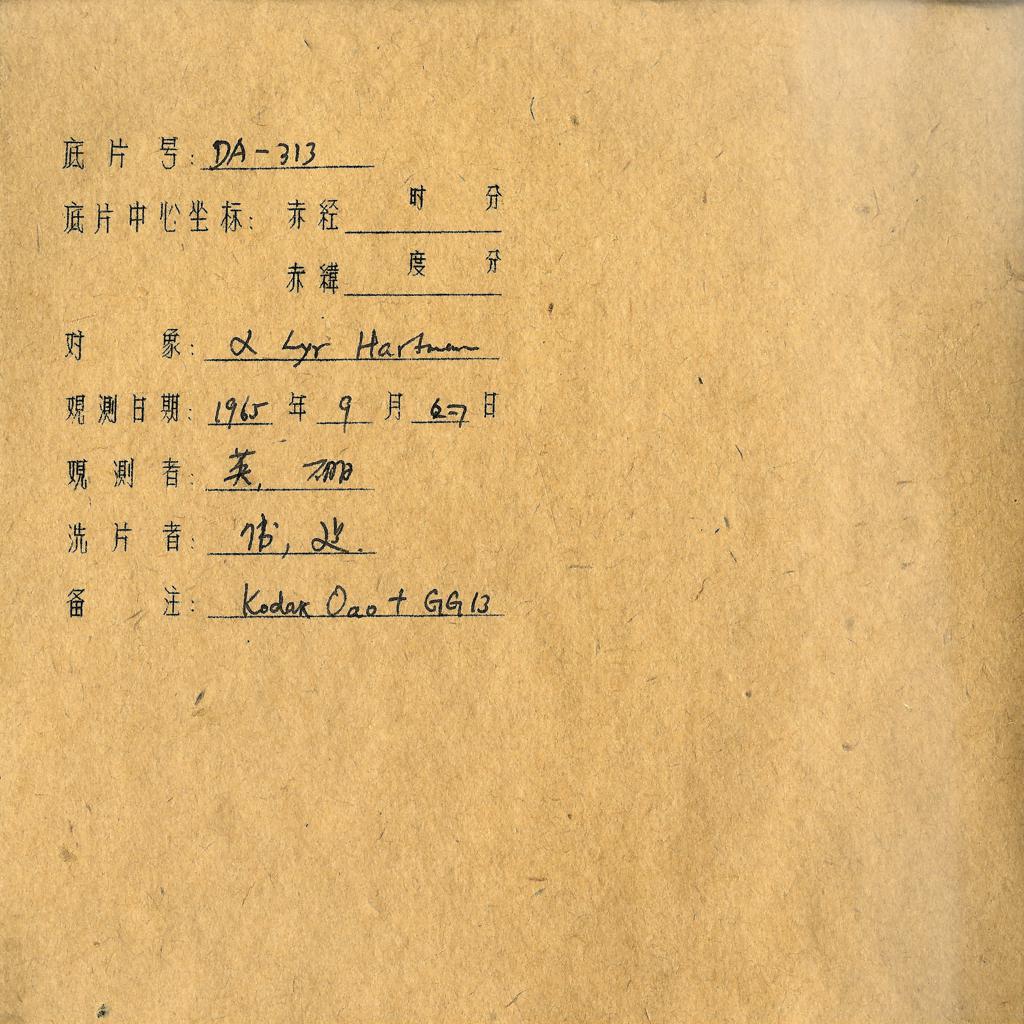 底片号: DA-313
底片中心坐标: 赤经 时 分
赤緯 度 分
对 象: α Lyr Hartman
观測日期: 1965 年 9 月 6-7 日
观測者: 英,
洗片者:
备 注: Kodak Oao + GG13